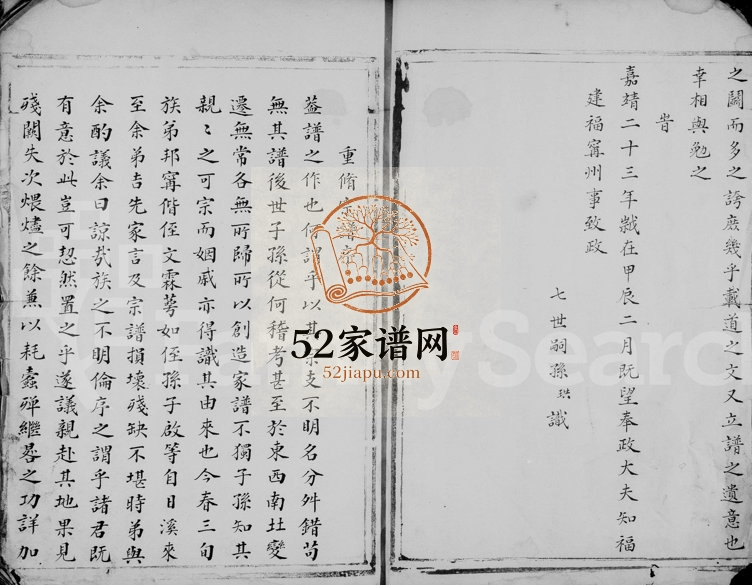 之闕而多之誇庶幾乎載道之文又立譜之遺意也
幸相與勉之
旹
嘉靖二十三年歲在甲辰二月既望奉政大夫知福
建福寧州事致政
七世嗣孫珙識
重脩
葢譜之作也何謂乎以其支不明名分舛錯苟
無其譜後世子孫從何稽考甚至於東西南北變
遷無常各無所歸所以創造家譜不獨子孫知其
親〻之可宗而姻戚亦得識其由來也今春三旬
族弟邦寧偕侄文霖蕚如侄孫子啟等自日溪來
至余弟吉先家言及宗譜損壞殘缺不堪時弟與
余酌議余曰諒哉族之不明倫序之謂乎諸君既
有意於此豈可恝然置之乎遂議親赴其地果見
殘闕失次煨燼之餘兼以耗蠹殫繼晷之功詳加
52家谱网
52jiapu.com